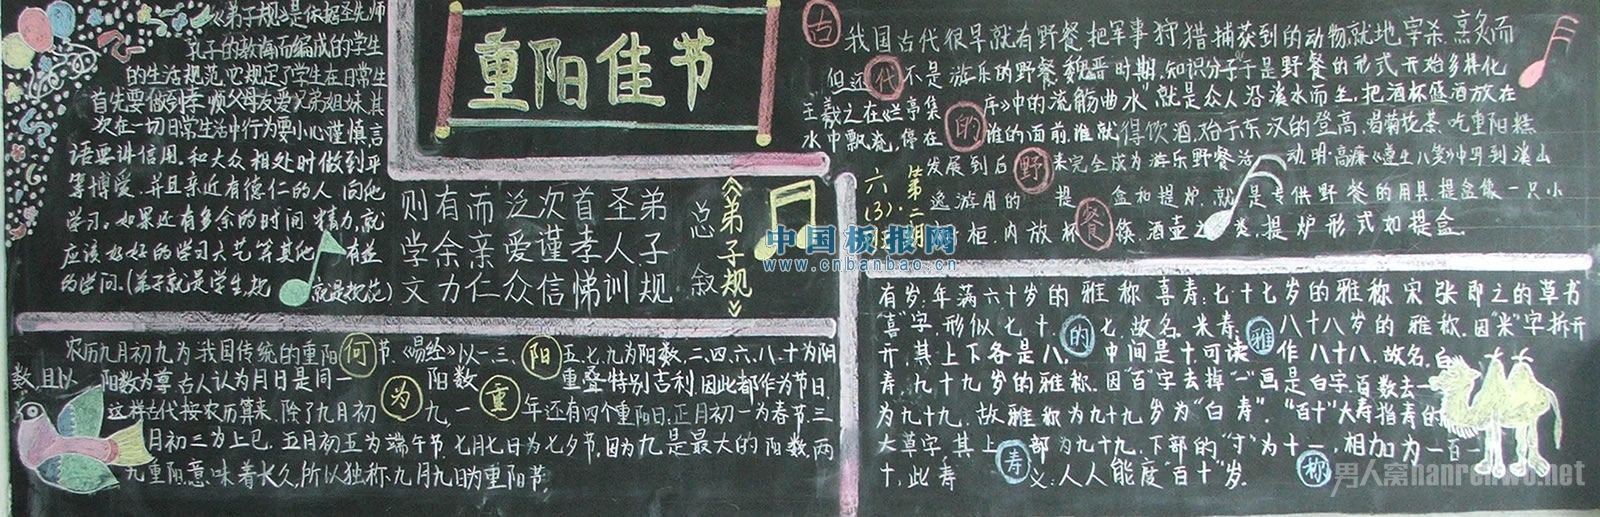 《弟子规》是依据圣先师
孔子的教诲而编成的学生
的生活规范它规定了学生在日常生
首先要做到孝顺父母友爱兄弟姐妹.其
次在一切日常生活中行为要小心谨慎言
语要讲信用.和大众相处时做到平
等博爱.并且亲近有德仁的人向他
学习.如果还有多余的时间精力,就
应该好好的学习六艺等其他有益
的学问.(弟子就是学生,规就是规范)
重阳佳节
则有而泛次首圣弟
学余亲爱谨孝人子
文力仁众信悌训规
总叙
《弟子规》
第二期
六(3).
古
我国古代很早就有野餐.把军事狩猎捕获到的动物就地宰杀.烹炙而
但还代不是游乐的野餐.魏晋时期.知识分子于是野餐的形式开始多样化
王羲之在《兰亭集的序》中的流觞曲水"就是众人沿溪水而坐.把酒杯盛酒放在
水中飘流,停在谁的面前.谁就得饮酒.始于东汉的登高.喝菊花茶.吃重阳糕
发展到后野来完全成为游乐野餐活动.明.高濂《遵生八笺》中写到溪山
逸游用的提盒和提炉.就是专供野餐的用具.提盒像一只小
柜.内放杯餐筷.酒壶之类,提炉形式如提盒.
农历九月初九为我国传统的重阳何节.《易经》以一.三、阳五.七.九为阳数.二.四.六.八.十为阴
数,且以阳数为尊.古人认为月日是同一阳数重叠特别吉利.因此都作为节日.
这样古代按农历算来.除了九月初为九,一重年还有四个重阳日:正月初一为春节.三
月初三为上巳.五月初五为端午节.七月七日为七夕节.因为九是最大的阳数,两
九重阳.意味着长久,所以独称九月九日为重阳节.
有岁:年满六十岁的雅称喜寿:七十七岁的雅称宋张即之的草书
喜"字.形似七十.的七.故名.米寿.雅八十八岁的雅称.因"米"字拆开
开,其上下各是八.中间是十可读作八十八.故名.白
寿.九十九岁的雅称.因"百"字去掉"一"画是白字百数去一
为九十九.故雅称为九十九岁为"白寿"."百十"大寿指寿的
大草字,其上寿部为九十九.下部的"寸"为十一,相加为一百一
十,此寿义:人人能度"百十"岁.称
中国板报网
www.cnbanbao.cn
男人窝nanrenwo.net